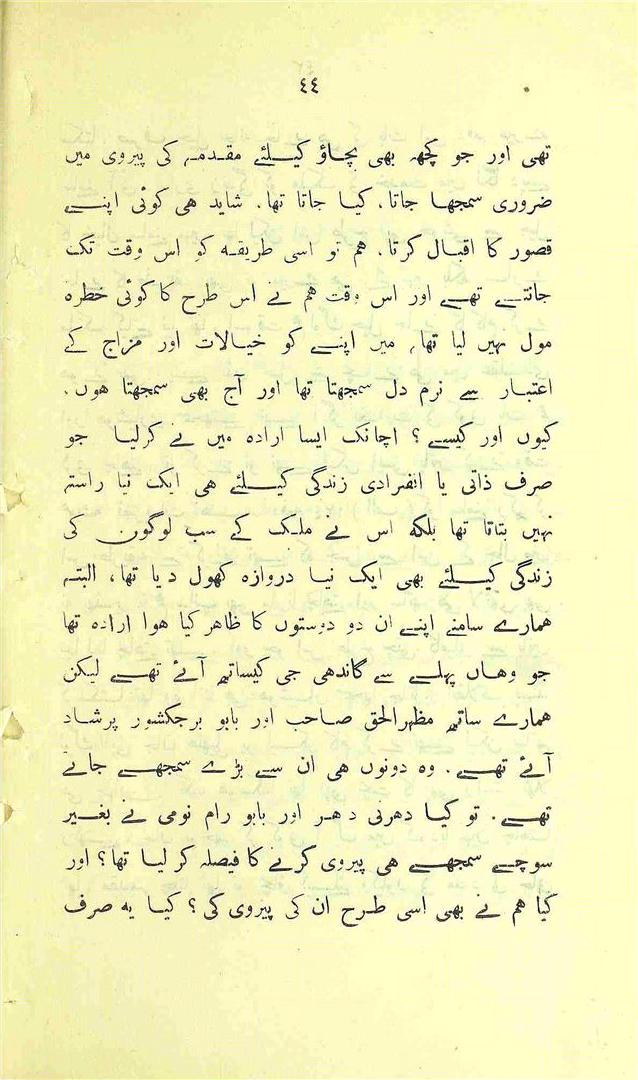 ٤٤
تھی اور جو کچھہ بھی بچاؤ کیلئے مقدمہ کی پیروی میں
ضروری سمجھا جاتا، کیا جاتا تھا۔ شاید ھی کوئی اپنے
قصور کا اقبال کرتا۔ ھم تو اسی طریقہ کو اس وقت تک
جانتے تھے اور اس وقت ھم نے اس طرح کا کوئی خطرہ
مول نہیں لیا تھا۔ میں اپنے کو خیالات اور مزاج کے
اعتبار سے نرم دل سمجھتا تھا اور آج بھی سمجھتا ھوں۔
کیوں اور کیسے ؟ اچانک ایسا ارادہ میں نے کرلیا جو
صرف ذاتی یا انفرادی زندگی کیلئے ھی ایک نیا راستہ
نہیں بتاتا تھا بلکہ اس نے ملک کے سب لوگوں کی
زندگی کیلئے بھی ایک نیا دروازہ کھول دیا تھا، البتہ
ھمارے سامنے اپنے ان دو دوستوں کا ظاھر کیا ھوا ارادہ تھا
جو وھاں پہلے سے گاندھی جی کیساتھ آئے تھے لیکن
ھمارے ساتھ مظہرالحق صاحب اور بابو برجکشور پرشاد
آئے تھے۔ وہ دونوں ھی ان سے بڑے سمجھے جاتے
تھے۔ تو کیا دھرنی دھر اور بابو رام نومی نے بغیر
سوچے سمجھے ھی پیروی کرنے کا فیصلہ کر لیا تھا؟ اور
کیا ھم نے بھی اسی طرح ان کی پیروی کی؟ کیا یہ صرف